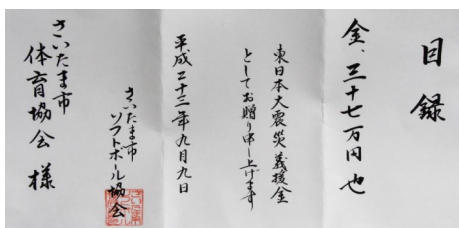 目録
金、三十七万円也
東日本大震災義援金
としてお贈り申し上げます
平成二十三年九月九日
さいたま市
ソフトボール協会
さいたま市
体育協会 様